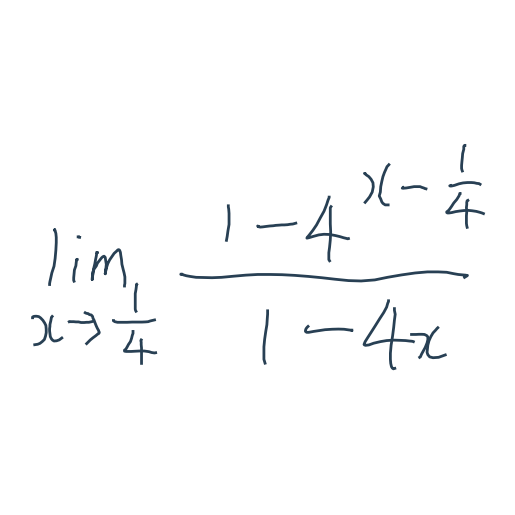 \lim_{x \to \frac{1}{4}} \frac{1 - 4^{x - \frac{1}{4}}}{1 - 4x}